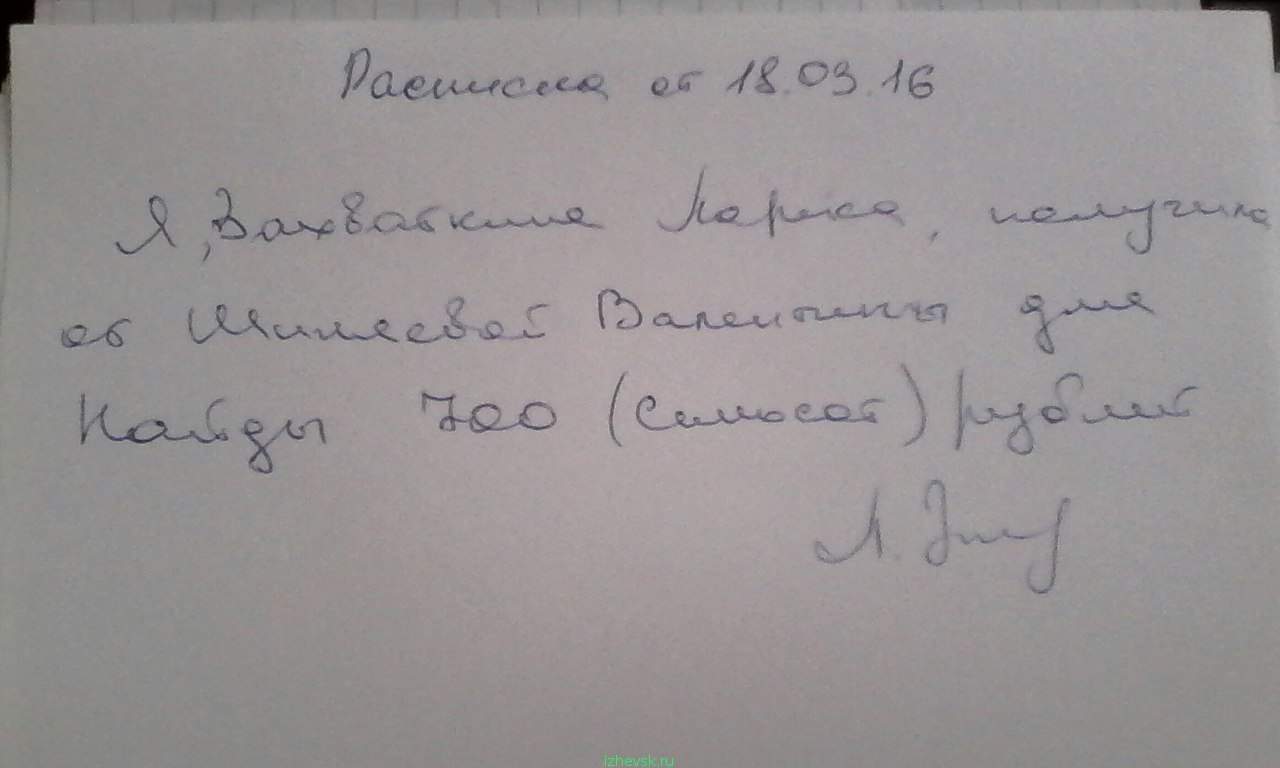 Расписка от 18.03.16
Я, Захваткина Лариса, получила
от Шиляевой Валентины для
Найды 700 (Семьсот) рублей
izhevsk.ru